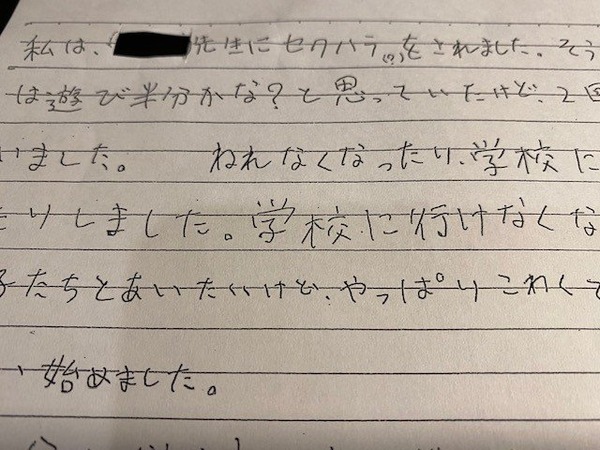 私は、先生にセクハラ(?)をされました。そう
は遊び半分かな?と思っていたけど、2回
いました。 ねれなくなったり、学校に
たりしました。学校に行けなくな
子たちとあいたいけど、やっぱりこわくて
い始めました。